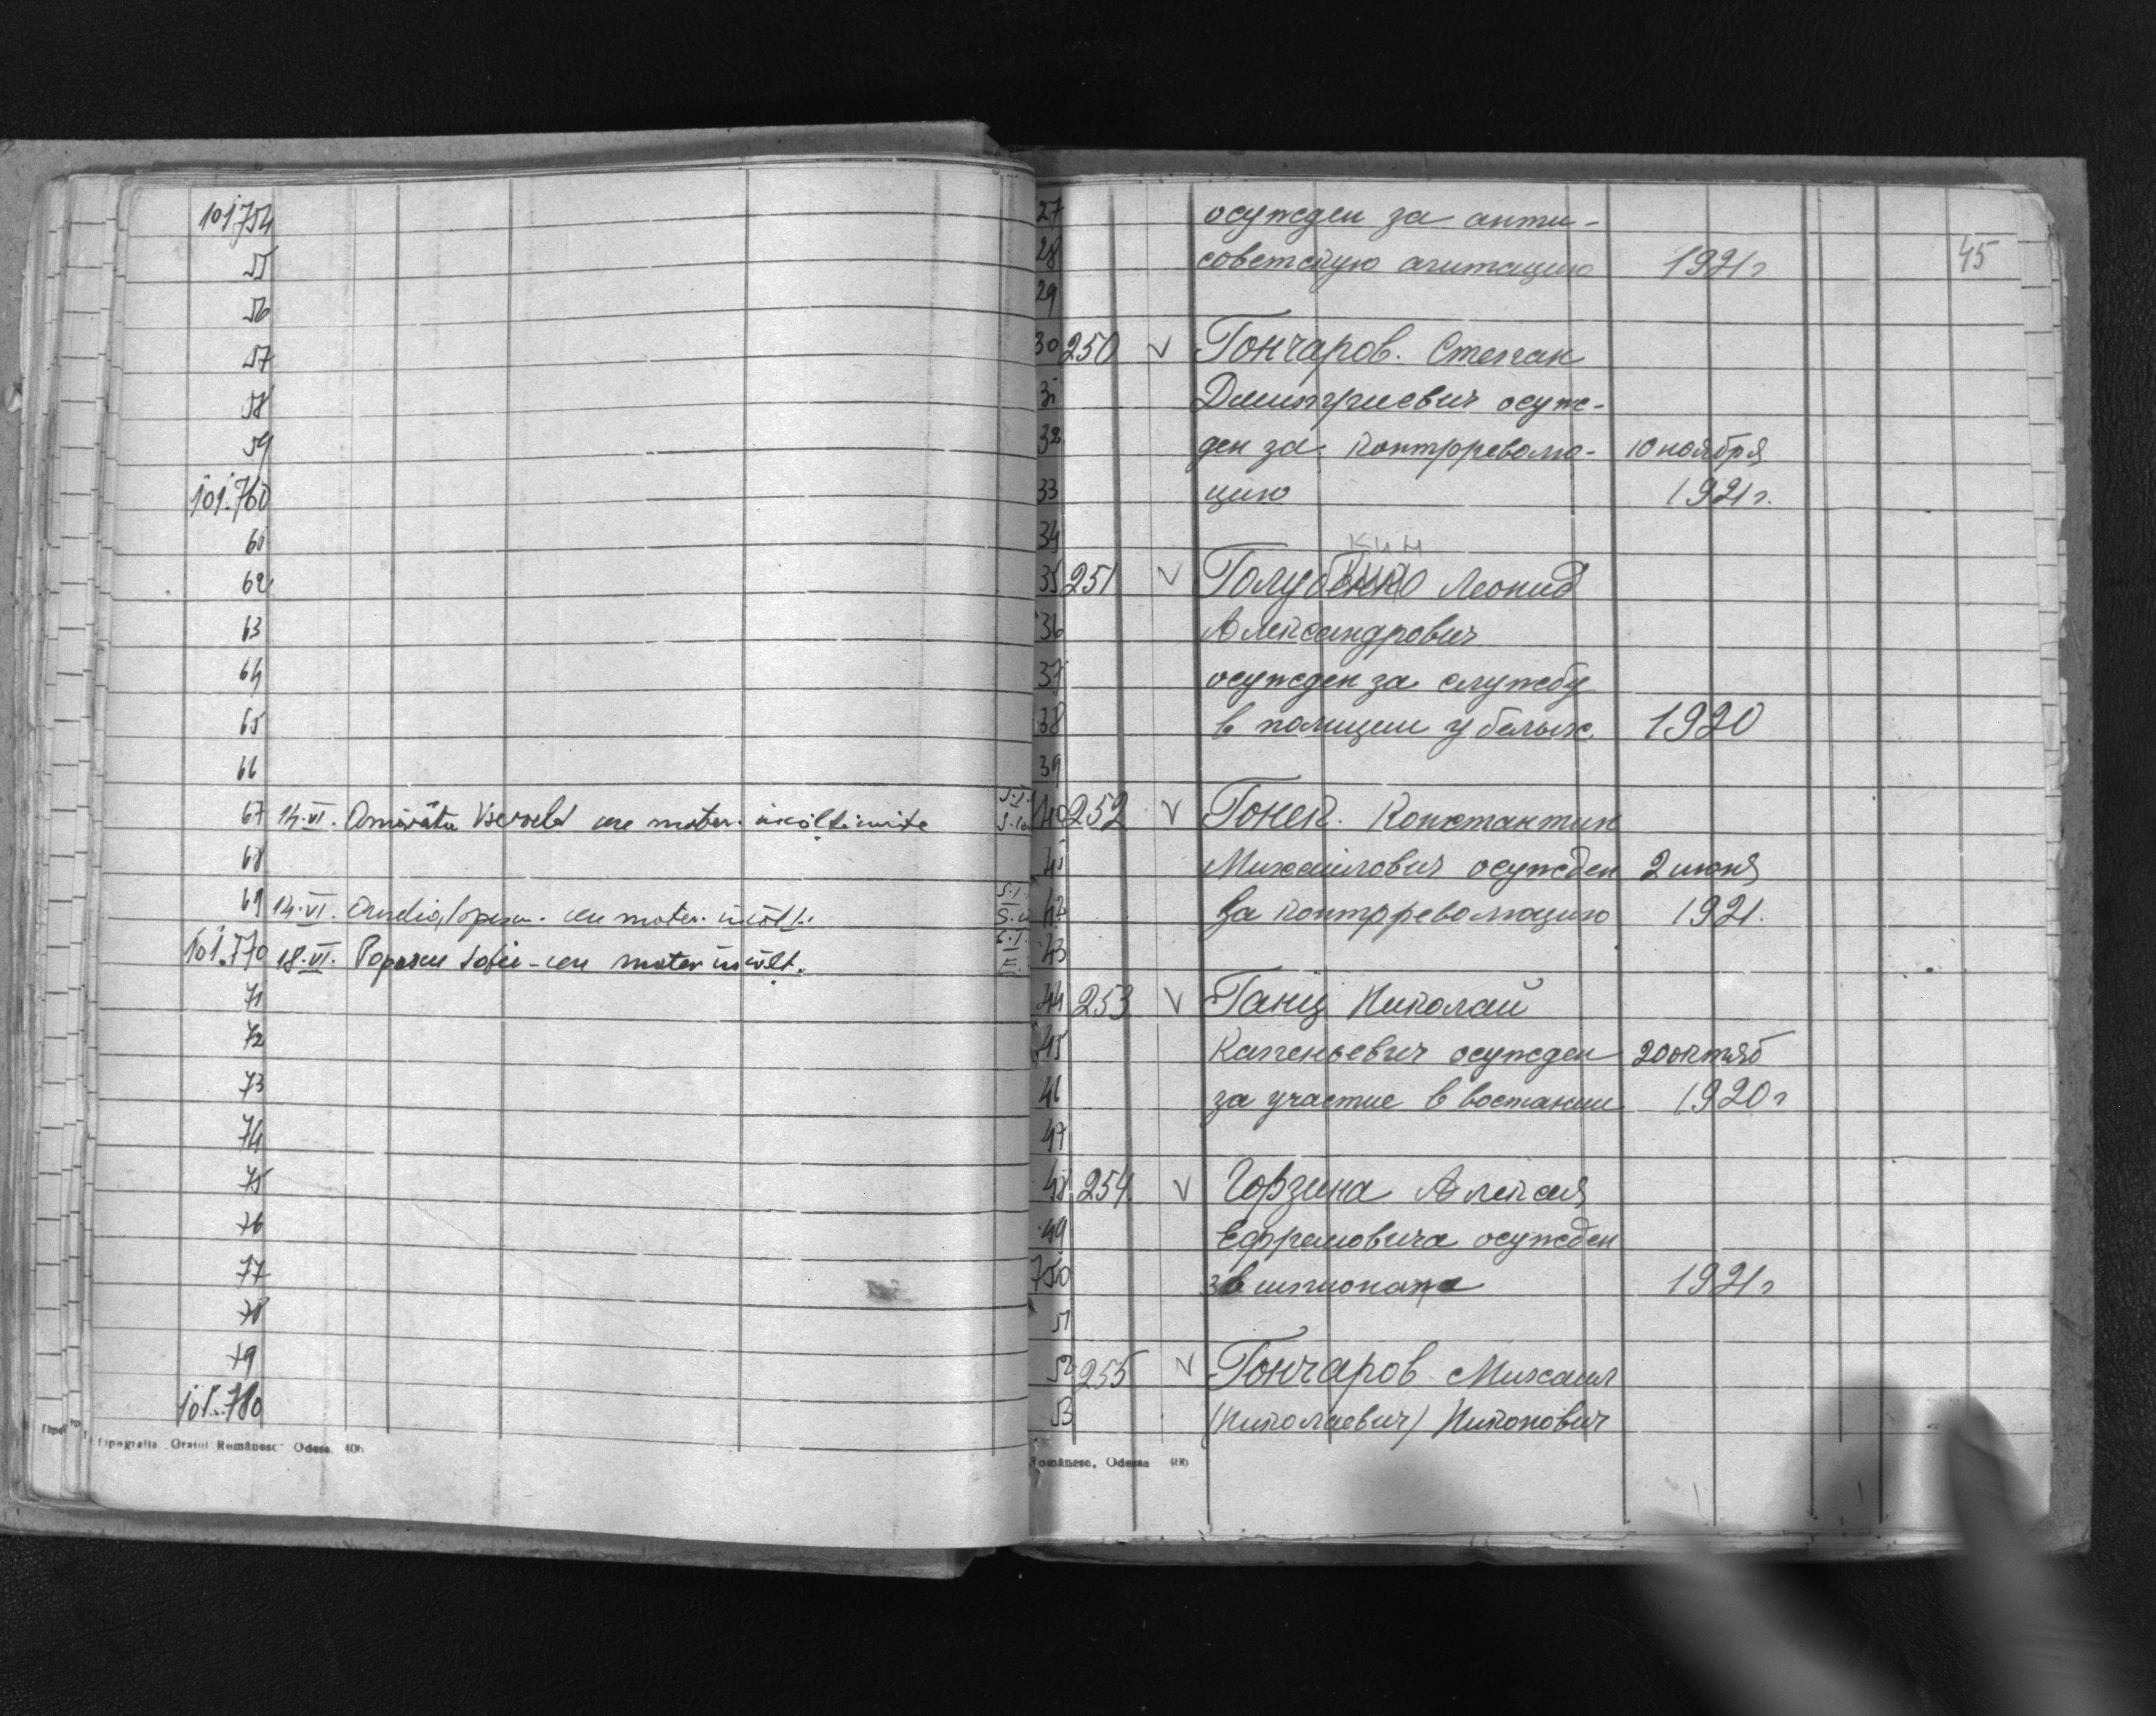 101754
55
56
57
58
59
101.760
61
62
63
64
65
66
67 14.VI.
68
69 14.VI.
101.770 18.VI. Popescu
71
72
73
74
75
76
77
78
79
101.780
Tipografia „Graiul Românesc" Odesa 406
27 осужден за анти-
28 советскую агитацию 1921г 45
29
30 250 V Гончаров. Степан
31 Дмитриевич осуж-
32 ден за контрреволю- 10 ноября
33 цию 1921г.
34 кин
35 251 V Голубенко Леонид
36 Александрович
37 осужден за службу
38 в полиции у белых. 1920
39
40 252 V Гонек. Константин
41 Михайлович осужден 2 июня
42 за контрреволюцию 1921.
43
44 253 V Ганц Николай
45 осужден 20 октяб
46 за участие в востании 1920г
47
48 254 V Горзина Алексая
49 Ефремовича осужден
750 за шпионаж 1921г
51
52 255 V Гончаров Михаил
53 (Николаевич) Никонович
Românesc, Odessa 406